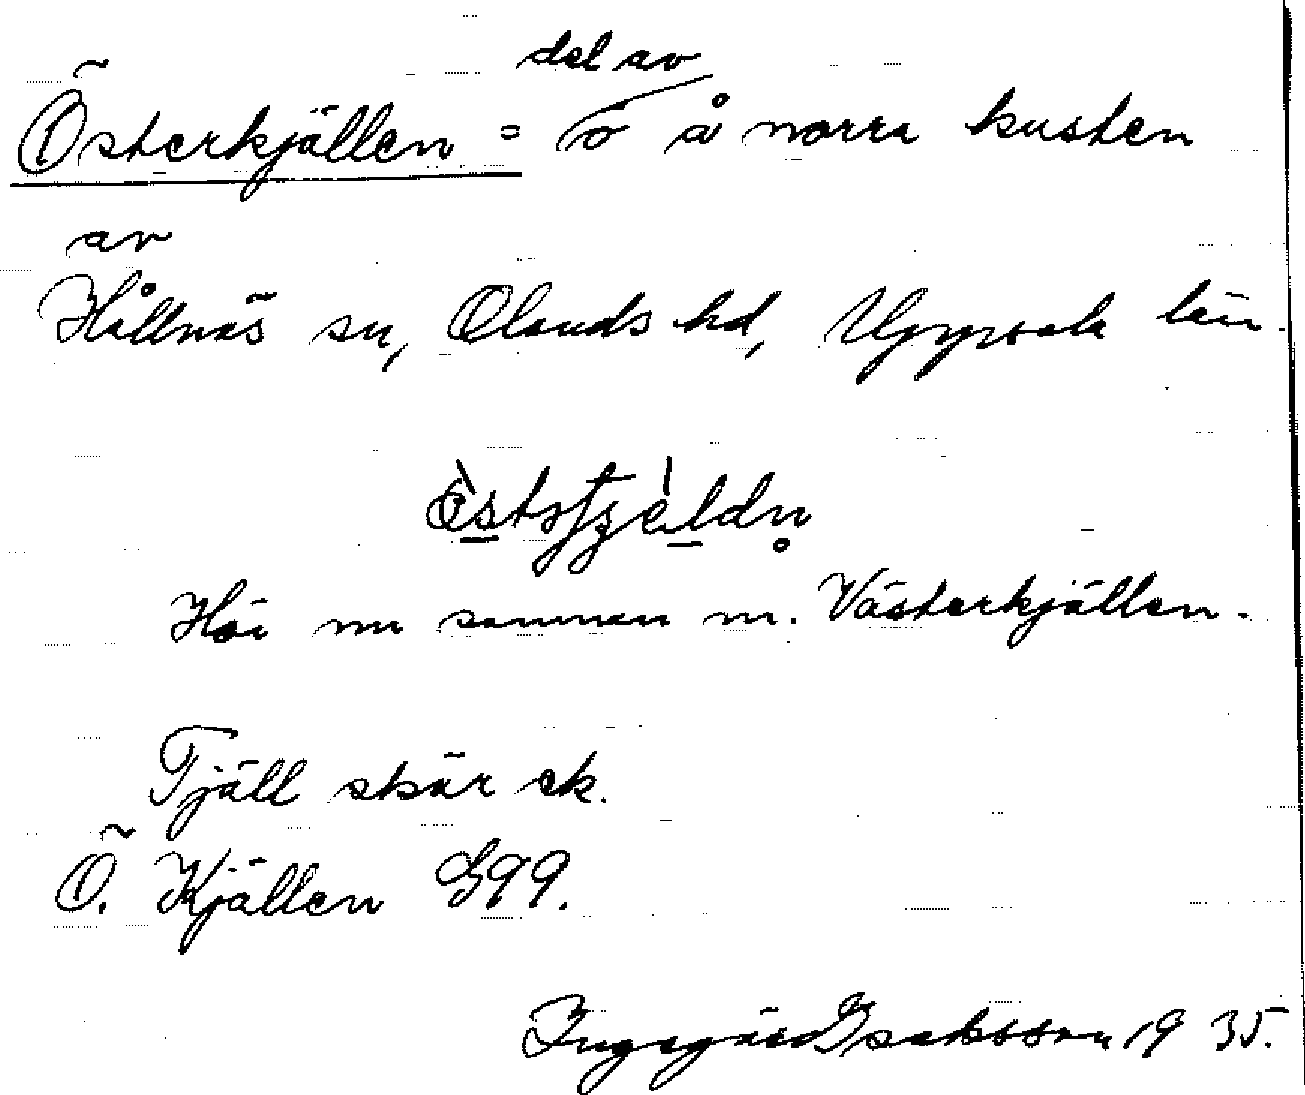 del av
Österkjällen = ö å norra kusten
av
Hållnäs sn, Olands hd, Uppsala län.
Hör nu samman m. Västerkjällen.
Tjäll skär ek.
Ö. Kjällen G99.
Ingegärd Isaksson 1935.